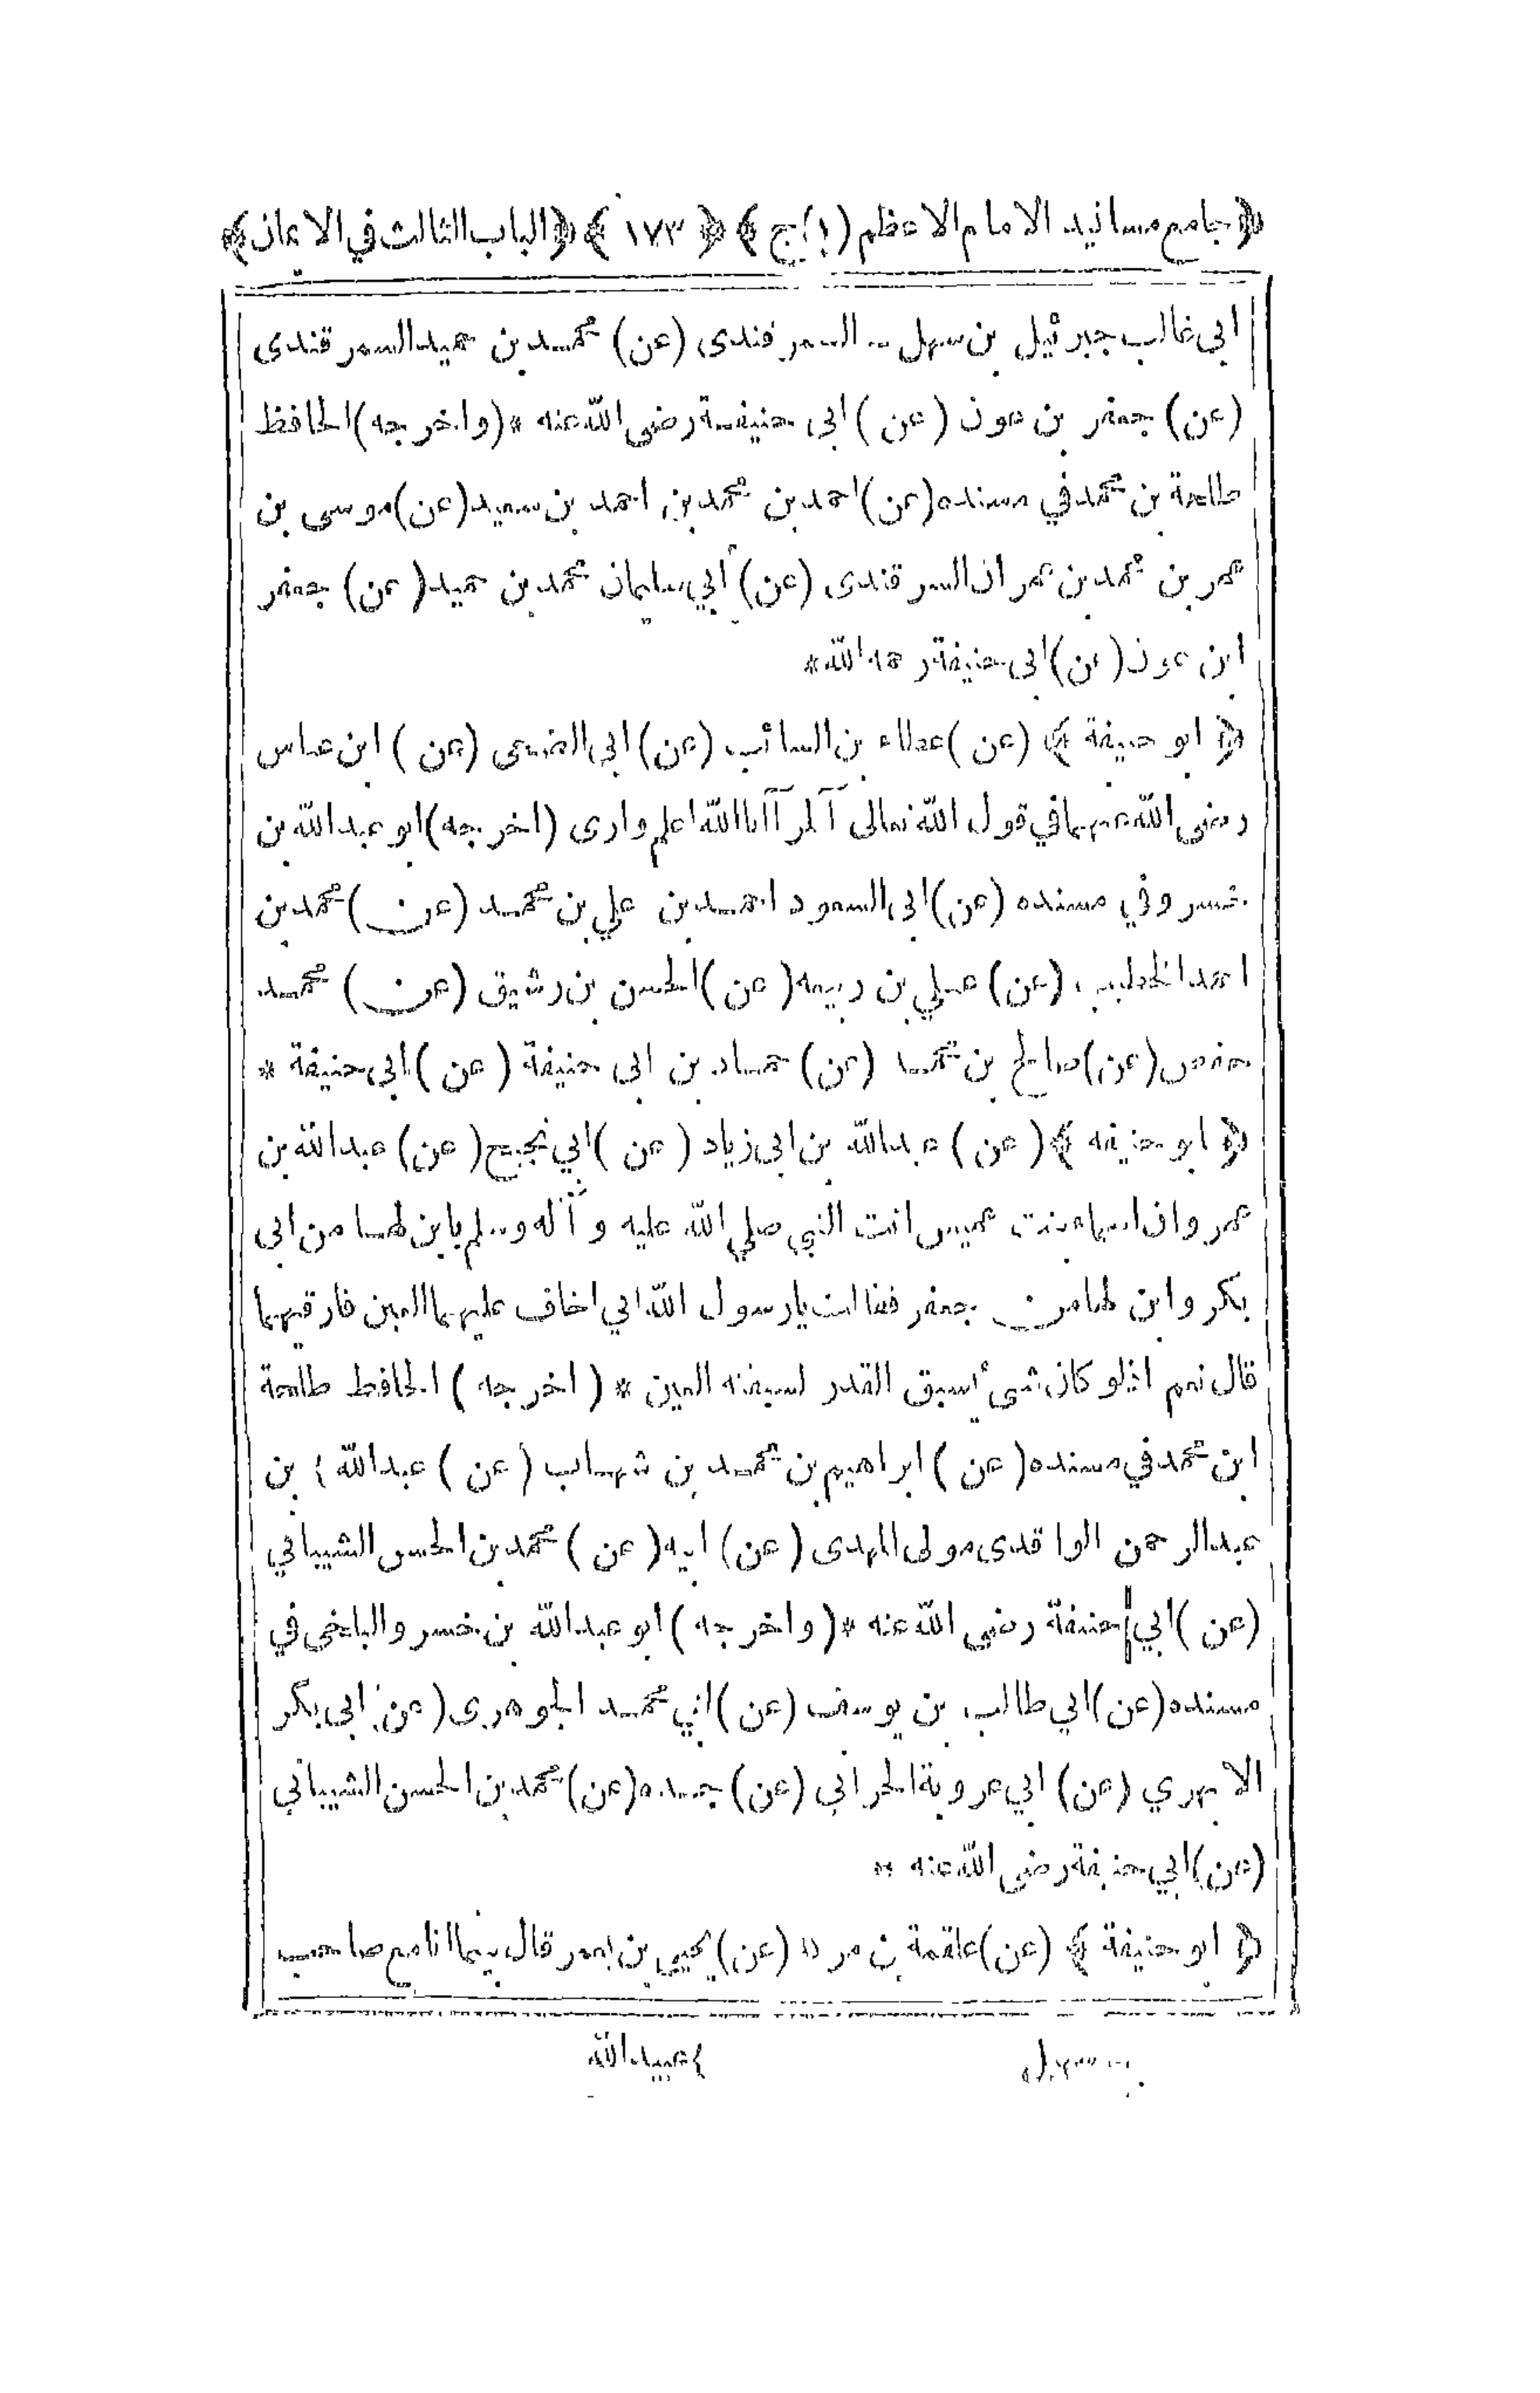 ﴿جامع مسانيد الامام الاعظم (١) ج﴾ ﴿١٧٣﴾ ﴿الباب الثالث في الايمان﴾
ابي غالب جبرئيل بن سهل السمرقندى (عن) محمد بن حميد السمرقندى
(عن) جعفر بن عون (عن) ابى حنيفة رضى الله عنه * (واخرجه) الحافظ
طلحة بن محمد في مسنده (عن) احمد بن محمد بن احمد بن سعيد (عن) موسى بن
عمر بن محمد بن عمران السمرقندى (عن) أبي سليمان محمد بن حميد (عن) جعفر
ابن عون (عن) ابى حنيفة رحمه الله *
﴿ابو حنيفة﴾ (عن) عطاء بن السائب (عن) ابى الضحى (عن) ابن عباس
رضى الله عنهما في قول الله تعالى آلمر آانا الله اعلم وارى (اخرجه) ابو عبد الله بن
خسرو في مسنده (عن) ابى السعود احمد بن علي بن محمد (عن) محمد بن
احمد الخطيب (عن) علي بن ربيعه (عن) الحسن بن رشيق (عن) محمد
حفص (عن) صالح بن محمد (عن) حماد بن ابى حنيفة (عن) ابى حنيفة *
﴿ابو حنيفه﴾ (عن) عبد الله بن ابى زياد (عن) ابي نجيح (عن) عبد الله بن
عمرو ان اسماء بنت عميس اتت النبي صلي الله عليه وآله وسلم بابن لها من ابى
بكر وابن لها من جعفر فقالت يا رسول الله اني اخاف عليهما العين فارقيهما
قال نعم اذ لو كان شئ أسبق القدر لسبقته العين * (اخرجه) الحافظ طلحة
ابن محمد في مسنده (عن) ابراهيم بن محمد بن شهاب (عن) عبد الله ٤ بن
عبد الرحمن الواقدى مولى المهدى (عن) ابيه (عن) محمد بن الحسن الشيباني
(عن) ابي حنيفة رضي الله عنه * (واخرجه) ابو عبد الله بن خسرو البلخى في
مسنده (عن) ابي طالب بن يوسف (عن) ابي محمد الجوهرى (عن) ابى بكر
الابهري (عن) ابي عروبة الحراني (عن) جده (عن) محمد بن الحسن الشيباني
(عن) ابي حنيفة رضى الله عنه *
﴿ابو حنيفة﴾ (عن) علقمة بن مرثد (عن) يحيى بن يعمر قال بينما انا مع صاحب
٤ عبيد الله